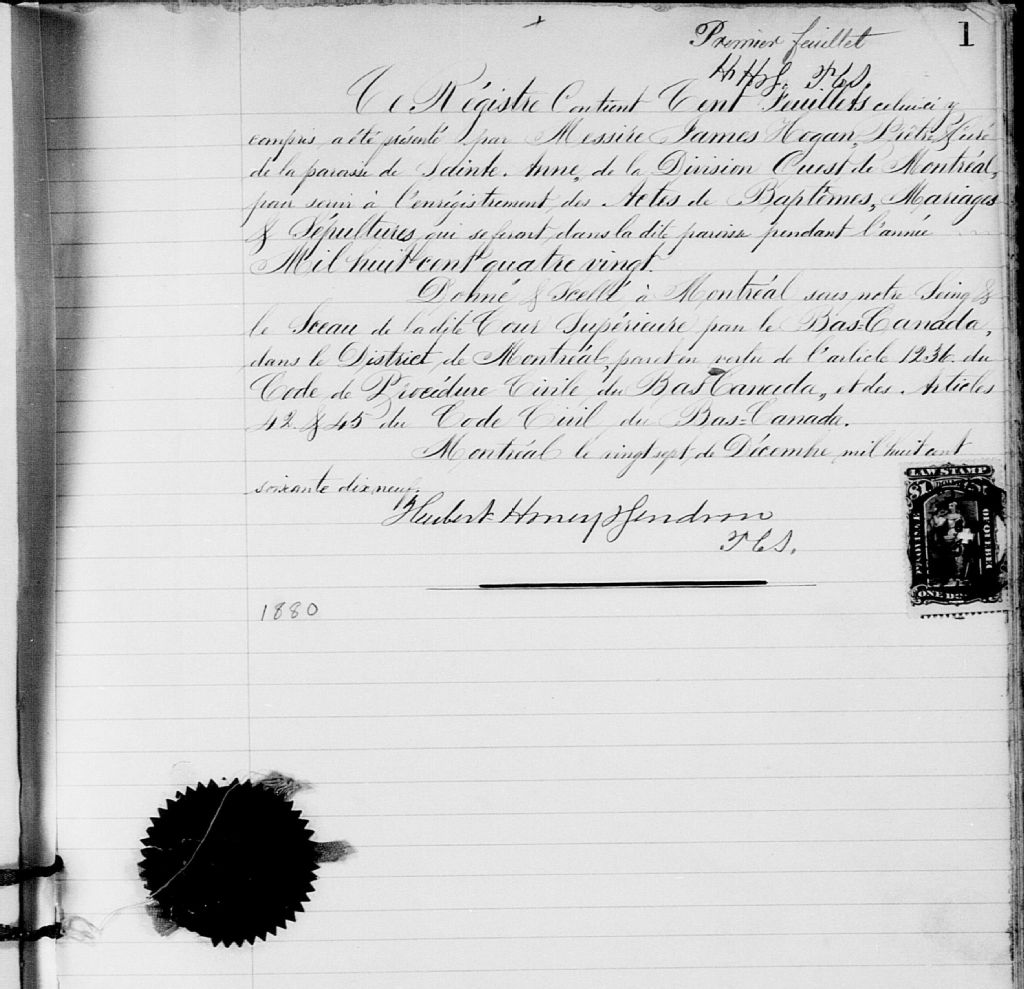 Premier feuillet
1
H H G. P.C.S.
Ce Régistre Contient Cent Feuillets celui-ci y
compris a été présenté par Messire James Hogan, Prêtre Curé
de la paroisse de Sainte. Anne, de la Division Ouest de Montréal,
pour servir à l'enrégistrement des Actes de Baptêmes, Mariages
& Sépultures, qui se feront, dans la dite paroisse pendant l'année
Mil huit cent quatre vingt.
Donné & Scellé à Montréal sous notre Seing &
le Sceau de la dite Cour Supérieure pour le Bas-Canada,
dans le District de Montréal, par et en vertu de l'article 1236 du
Code de Procédure Civile du Bas Canada, et des Articles
42 & 45 du Code Civil du Bas-Canada.
Montréal le vingt sept de Décembre mil huit cent
soixante dix neuf.
Hubert Honey Gendron
P C S.
LAW STAMP
$1
PROVINCE
OF QUEBEC
ONE DO
1880